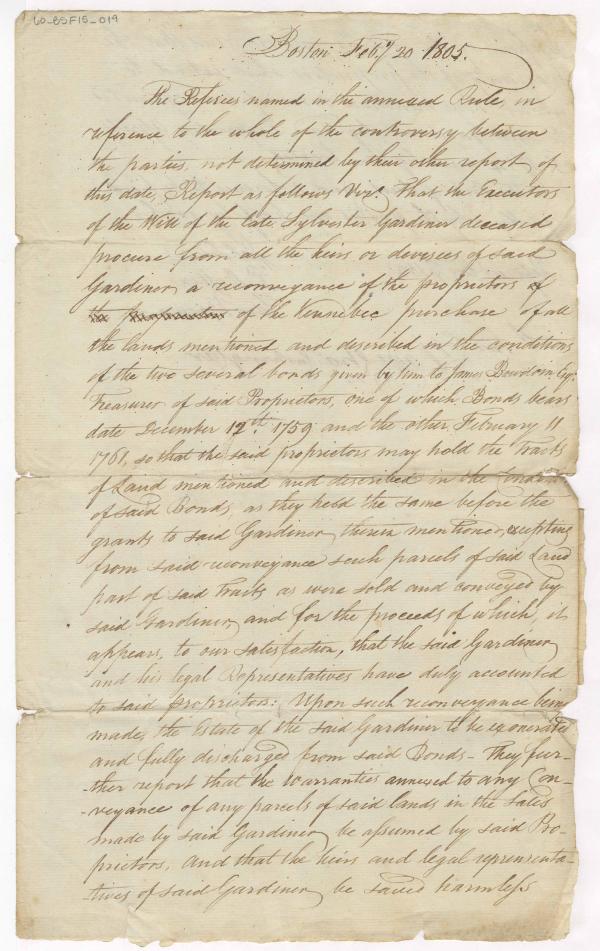 60-BSF15-019
Boston Feby 20 1805.
The Referees named in the annexed Rule, in
reference to the whole of the controversy between
the parties, not determined by their other report of
this date, Report as follows Vizt. That the Executors
of the Will of the late Sylvester Gardiner deceased
procure from all the heirs or devisees of said
Gardiner a reconveyance of the proprietors of
of the Kennebec purchase of all
the lands mentioned and described in the conditions
of the two several bonds given by him to James Bowdoin Esqr.
Treasurer of said Proprietors, one of which Bonds bears
date December 12th. 1759 and the other, February 11
1761, so that the said proprietors may hold the Tracts
of Land mentioned and described in the
of said Bonds, as they held the same before the
grants to said Gardiner, therein mentioned, excepting
from said reconveyance such parcels of said Land
part of said Tracts as were sold and conveyed by
said Gardiner, and for the proceeds of which, it
appears, to our satisfaction, that the said Gardiner
and his legal Representatives have duly accounted
to said proprietors: Upon such reconveyance being
made, the Estate of the said Gardiner to be exonerated
and fully discharged from said Bonds - They fur-
-ther report that the warranties annexed to any Con-
-veyance of any parcels of said lands in the sales
made by said Gardiner, be assumed by said Pro-
prietors, And that the heirs and legal representa-
-tives of said Gardiner, be saved harmless